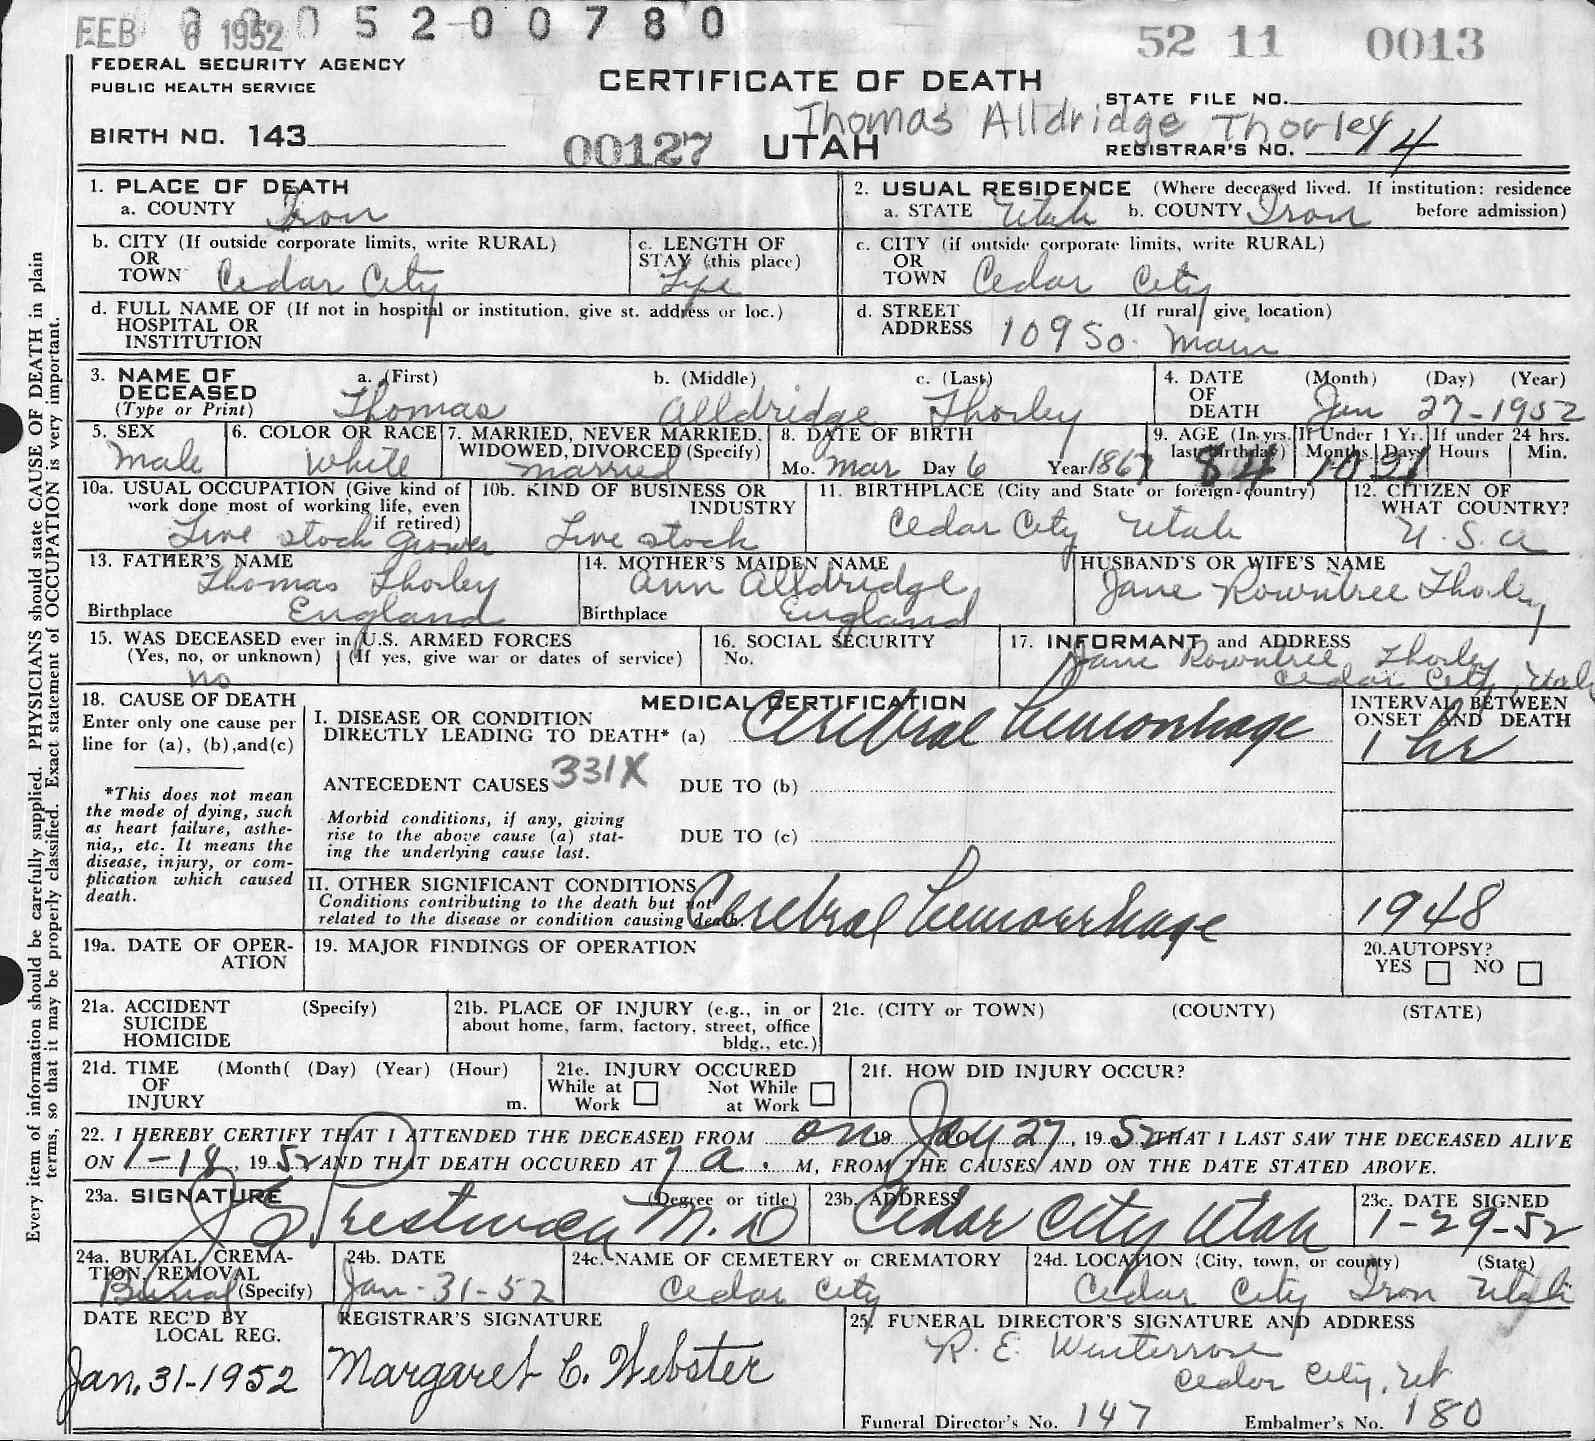 FEB 6 1952
005200780
52 11 0013
FEDERAL SECURITY AGENCY
PUBLIC HEALTH SERVICE
CERTIFICATE OF DEATH
STATE FILE NO.
Thomas Alldridge Thorley
BIRTH NO. 143
00127
UTAH
REGISTRAR'S NO. 14
Every item of information should be carefully supplied. PHYSICIANS should state CAUSE OF DEATH in plain
terms, so that it may be properly classified. Exact statement of OCCUPATION is very important.
1. PLACE OF DEATH
a. COUNTY Iron
2. USUAL RESIDENCE (Where deceased lived. If institution: residence
a. STATE Utah b. COUNTY Iron before admission)
b. CITY (If outside corporate limits, write RURAL)
OR
TOWN Cedar City
c. LENGTH OF
STAY (this place)
Life
c. CITY (if outside corporate limits, write RURAL)
OR
TOWN Cedar City
d. FULL NAME OF (If not in hospital or institution, give st. address or loc.)
HOSPITAL OR
INSTITUTION
d. STREET (If rural, give location)
ADDRESS 109 So. Main
3. NAME OF a. (First) b. (Middle) c. (Last)
DECEASED
(Type or Print) Thomas Alldridge Thorley
4. DATE (Month) (Day) (Year)
OF
DEATH Jan 27-1952
5. SEX
Male
6. COLOR OR RACE
White
7. MARRIED, NEVER MARRIED,
WIDOWED, DIVORCED (Specify)
married
8. DATE OF BIRTH
Mo. Mar Day 6 Year 1867
9. AGE (In yrs.
last birthday) 84
If Under 1 Yr.
Months Days
10 21
If under 24 hrs.
Hours Min.
10a. USUAL OCCUPATION (Give kind of
work done most of working life, even
if retired)
Live stock Grower
10b. KIND OF BUSINESS OR
INDUSTRY
Live stock
11. BIRTHPLACE (City and State or foreign country)
Cedar City Utah
12. CITIZEN OF
WHAT COUNTRY?
U. S. a
13. FATHER'S NAME
Thomas Thorley
Birthplace England
14. MOTHER'S MAIDEN NAME
Ann Alldridge
Birthplace England
HUSBAND'S OR WIFE'S NAME
Jane Rowntree Thorley
15. WAS DECEASED ever in U.S. ARMED FORCES
(Yes, no, or unknown) (If yes, give war or dates of service)
no
16. SOCIAL SECURITY
No.
17. INFORMANT and ADDRESS
Jane Rowntree Thorley
Cedar City, Utah
18. CAUSE OF DEATH
Enter only one cause per
line for (a), (b), and (c)
*This does not mean
the mode of dying, such
as heart failure, asthe-
nia,, etc. It means the
disease, injury, or com-
plication which caused
death.
MEDICAL CERTIFICATION
I. DISEASE OR CONDITION
DIRECTLY LEADING TO DEATH* (a) Cerebral hemorrhage
INTERVAL BETWEEN
ONSET AND DEATH
1 hr
ANTECEDENT CAUSES 331X DUE TO (b)
Morbid conditions, if any, giving
rise to the above cause (a) stat-
ing the underlying cause last.
DUE TO (c)
II. OTHER SIGNIFICANT CONDITIONS
Conditions contributing to the death but not
related to the disease or condition causing death.
Cerebral hemorrhage
1948
19a. DATE OF OPER-
ATION
19. MAJOR FINDINGS OF OPERATION
20. AUTOPSY?
YES NO
21a. ACCIDENT (Specify)
SUICIDE
HOMICIDE
21b. PLACE OF INJURY (e.g., in or
about home, farm, factory, street, office
bldg., etc.)
21c. (CITY or TOWN) (COUNTY) (STATE)
21d. TIME (Month( (Day) (Year) (Hour)
OF
INJURY m.
21e. INJURY OCCURED
While at Work
Not While at Work
21f. HOW DID INJURY OCCUR?
22. I HEREBY CERTIFY THAT I ATTENDED THE DECEASED FROM on 19 Jan 27, 1952 THAT I LAST SAW THE DECEASED ALIVE
ON 1-18, 1952 AND THAT DEATH OCCURED AT 7 a. M, FROM THE CAUSES AND ON THE DATE STATED ABOVE.
23a. SIGNATURE (Degree or title)
J S Prestwich M. D
23b. ADDRESS
Cedar City Utah
23c. DATE SIGNED
1-29-52
24a. BURIAL, CREMA-
TION, REMOVAL
(Specify)
Burial
24b. DATE
Jan-31-52
24c. NAME OF CEMETERY or CREMATORY
Cedar City
24d. LOCATION (City, town, or county) (State)
Cedar City Iron Utah
DATE REC'D BY
LOCAL REG.
Jan. 31-1952
REGISTRAR'S SIGNATURE
Margaret C. Webster
25. FUNERAL DIRECTOR'S SIGNATURE AND ADDRESS
R. E. Winterrose
Cedar City, Ut
Funeral Director's No. 147 Embalmer's No. 180